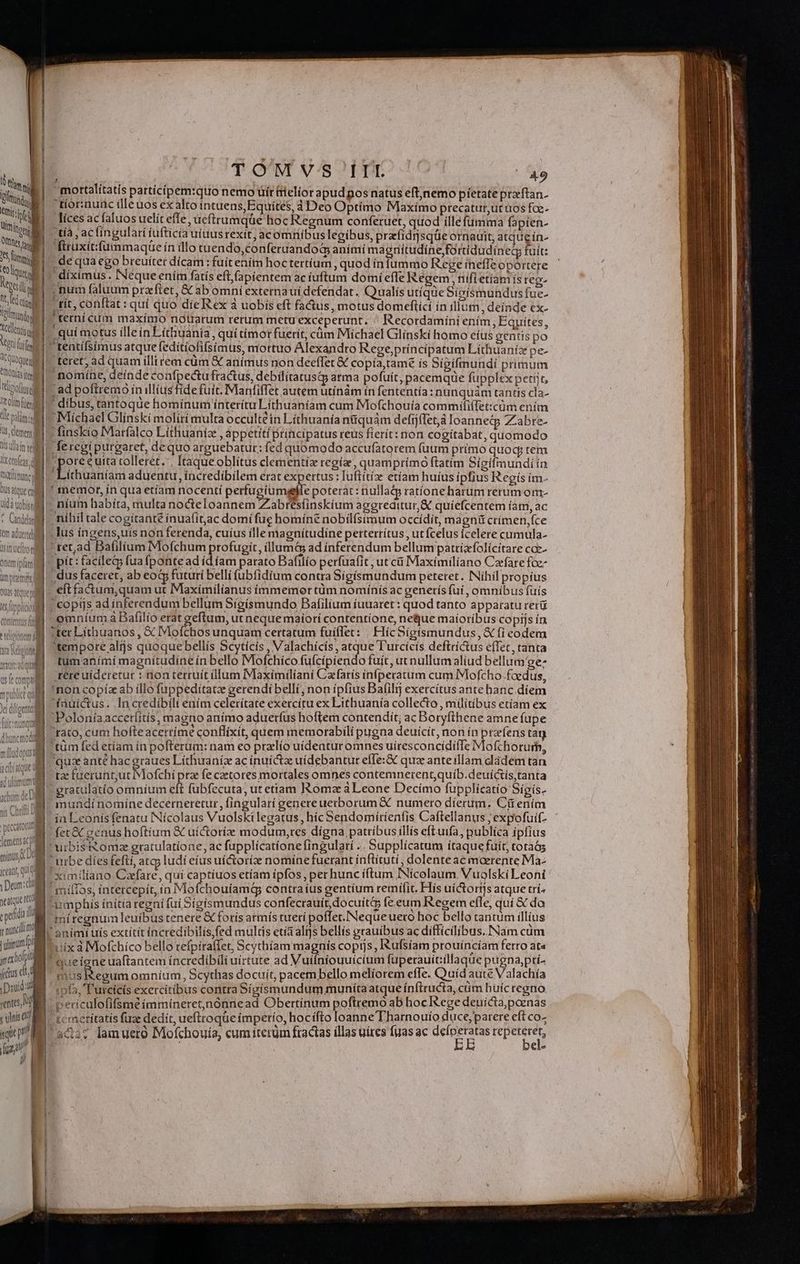 TOMVS III. 49
mortalitatis participem: quo nemo uir melior apud nos natus est, nemo pietate præstan-
tior: nunc ille uos ex alto intuens, Equites, à Deo Optimo Maximo precatur, ut uos fœ-
lices ac saluos uelit esse, uestrumq́ue hoc Regnum conseruet, quod ille summa sapien-
tia, ac singulari iusticia uiuus rexit, ac omnibus legibus, præsidijsq́ue ornauit, atque in-
struxit: summaq́ue in illo tuendo, conseruandoq́; animi magnitudine, fortitudineq́; fuit:
de qua ego breuiter dicam: fuit enim hoc tertium, quod in summo Rege inesse oportere
diximus. Neque enim satis est, sapientem ac iustum domi esse Regem, nisi etiam is reg-
num saluum præstet, & ab omni externa ui defendat. Qualis utiq́ue Sigismundus fue-
rit, constat: qui quo die Rex à uobis est factus, motus domestici in illum, deinde ex-
terni cum maximo nouarum rerum metu exceperunt. Recordamini enim, Equites,
qui motus ille in Lithuania, qui timor fuerit, cùm Michael Glinski homo eius gentis po
tentissimus atque seditiosissimus, mortuo Alexandro Rege, principatum Lithuaniæ pe-
teret, ad quam illi rem cùm & animus non deesset & copia, tamẽ is Sigismundi primum
nomine, deinde conspectu fractus, debilitatusq́; arma posuit, pacemque supplex petijt,
ad postremo in illius fide fuit. Mansisset autem utinàm in sententia: nunquàm tantis cla-
dibus, tantoq́ue hominum interitu Lithuaniam cum Moschouia commisisset: cùm enim
Michael Glinski moliri multa occultè in Lithuania nũquàm desijsset, à Ioanneq́; Zabre-
finskio Marsalco Lithuaniæ, appetiti principatus reus fierit: non cogitabat, quomodo
se regi purgaret, de quo arguebatur: sed quomodo accusatorem suum primo quoq́; tem
pore è uita tolleret. Itaque oblitus clementiæ regiæ, quamprimò statim Sigismundi in
Lithuaniam aduentu, incredibilem erat expertus: Iustitiæ etiam huius ipsius Regis im-
memor, in qua etiam nocenti perfugium esse poterat: nullaq́; ratione harum rerum om-
nium habita, multa nocte Ioannem Zabresfinskium aggreditur, & quiescentem iam, ac
nihil tale cogitantẽ inuasit, ac domi suę hominẽ nobilissimum occidit, magnũ crimen, sce
lus ingens, uis non ferenda, cuius ille magnitudine perterritus, ut scelus scelere cumula-
ret, ad Basilium Moschum profugit, illumq́; ad inferendum bellum patriæ solicitare cœ-
pit: facileq́; sua sponte ad id iam parato Basilio persuasit, ut cũ Maximiliano Cæsare fœ-
dus faceret, ab eoq́; futuri belli subsidium contra Sigismundum peteret. Nihil propius
est factum, quam ut Maximilianus immemor tùm nominis ac generis sui, omnibus suis
copijs ad inferendum bellum Sigismundo Basilium iuuaret: quod tanto apparatu rerũ
omnium à Basilio erat gestum, ut neque maiori contentione, neque maioribus copijs in
ter Lithuanos, & Moschos unquam certatum fuisset: Hîc Sigismundus, & si eodem
tempore alijs quoque bellis Scyticis, Valachicis, atque Turcicis destrictus esset, tanta
tum animi magnitudine in bello Moschico suscipiendo fuit, ut nullum aliud bellum ge-
rere uideretur: non terruit illum Maximiliani Cæsaris insperatum cum Moscho fœdus,
non copiæ ab illo suppeditatæ gerendi belli, non ipsius Basilij exercitus ante hanc diem
inuictus. Incredibili enim celeritate exercitu ex Lithuania collecto, militibus etiam ex
Polonia accersitis, magno animo aduersus hostem contendit, ac Borysthene amne supe
rato, cum hoste acerrimè conflixit, quem memorabili pugna deuicit, non in præsens tantùm
tùm sed etiam in posterum: nam eo prælio uidentur omnes uires concidisse Moschorum,
quæ antè hac graues Lithuaniæ ac inuictæ uidebantur esse: & quæ ante illam cladem tan
tæ fuerunt, ut Moschi præ se cæteros mortales omnes contemnerent, quib. deuictis, tanta
gratulatio omnium est subsecuta, ut etiam Romæ à Leone Decimo supplicatio Sigis-
mundi nomine decerneretur, singulari genere uerborum & numero dierum. Cũ enim
in Leonis senatu Nicolaus Vuolski legatus, hîc Sendomiriensis Castellanus, exposuis-
set & genus hostium & uictoriæ modum, res digna patribus illis est uisa, publica ipsius
urbis Romæ gratulatione, ac supplicatione singulari. Supplicatum itaque fuit, totaq́;
urbe dies festi, atq́; ludi eius uictoriæ nomine fuerant instituti, dolente ac mœrente Ma-
ximiliano Cæsare, qui captiuos etiam ipsos, per hunc istum Nicolaum Vuolski Leoni
missos, intercepit, in Moschouiamq́; contra ius gentium remisit. His uictorijs atque tri-
umphis initia regni sui Sigismundus consecrauit, docuitq́; se eum Regem esse, qui & do
mi regnum leuibus tenere & foris armis tueri posset. Neque uerò hoc bello tantùm illius
animi uis extitit incredibilis, sed multis etiã alijs bellis grauibus ac difficilibus. Nam cùm
uix à Moschico bello respirasset, Scythiam magnis copijs, Russiam prouinciam ferro at-
que igne uastantem incredibili uirtute ad Vuisniouuicium superauit: illaq́ue pugna, pri-
mus Regum omnium, Scythas docuit, pacem bello meliorem esse. Quid autẽ Valachia
ipsa, Turcicis exercitibus contra Sigismundum munita atque instructa, cùm huic regno
periculosissimè immineret, nónne ad Obertinum postremò ab hoc Rege deuicta, pœnas
temeritatis suæ dedit, uestroq́ue imperio, hoc isto Ioanne Tharnouio duce, parere est co-
acta? Iam uerò Moschouia, cum iterùm fractas illas uires suas ac desperatas repeteret,
EE bel-